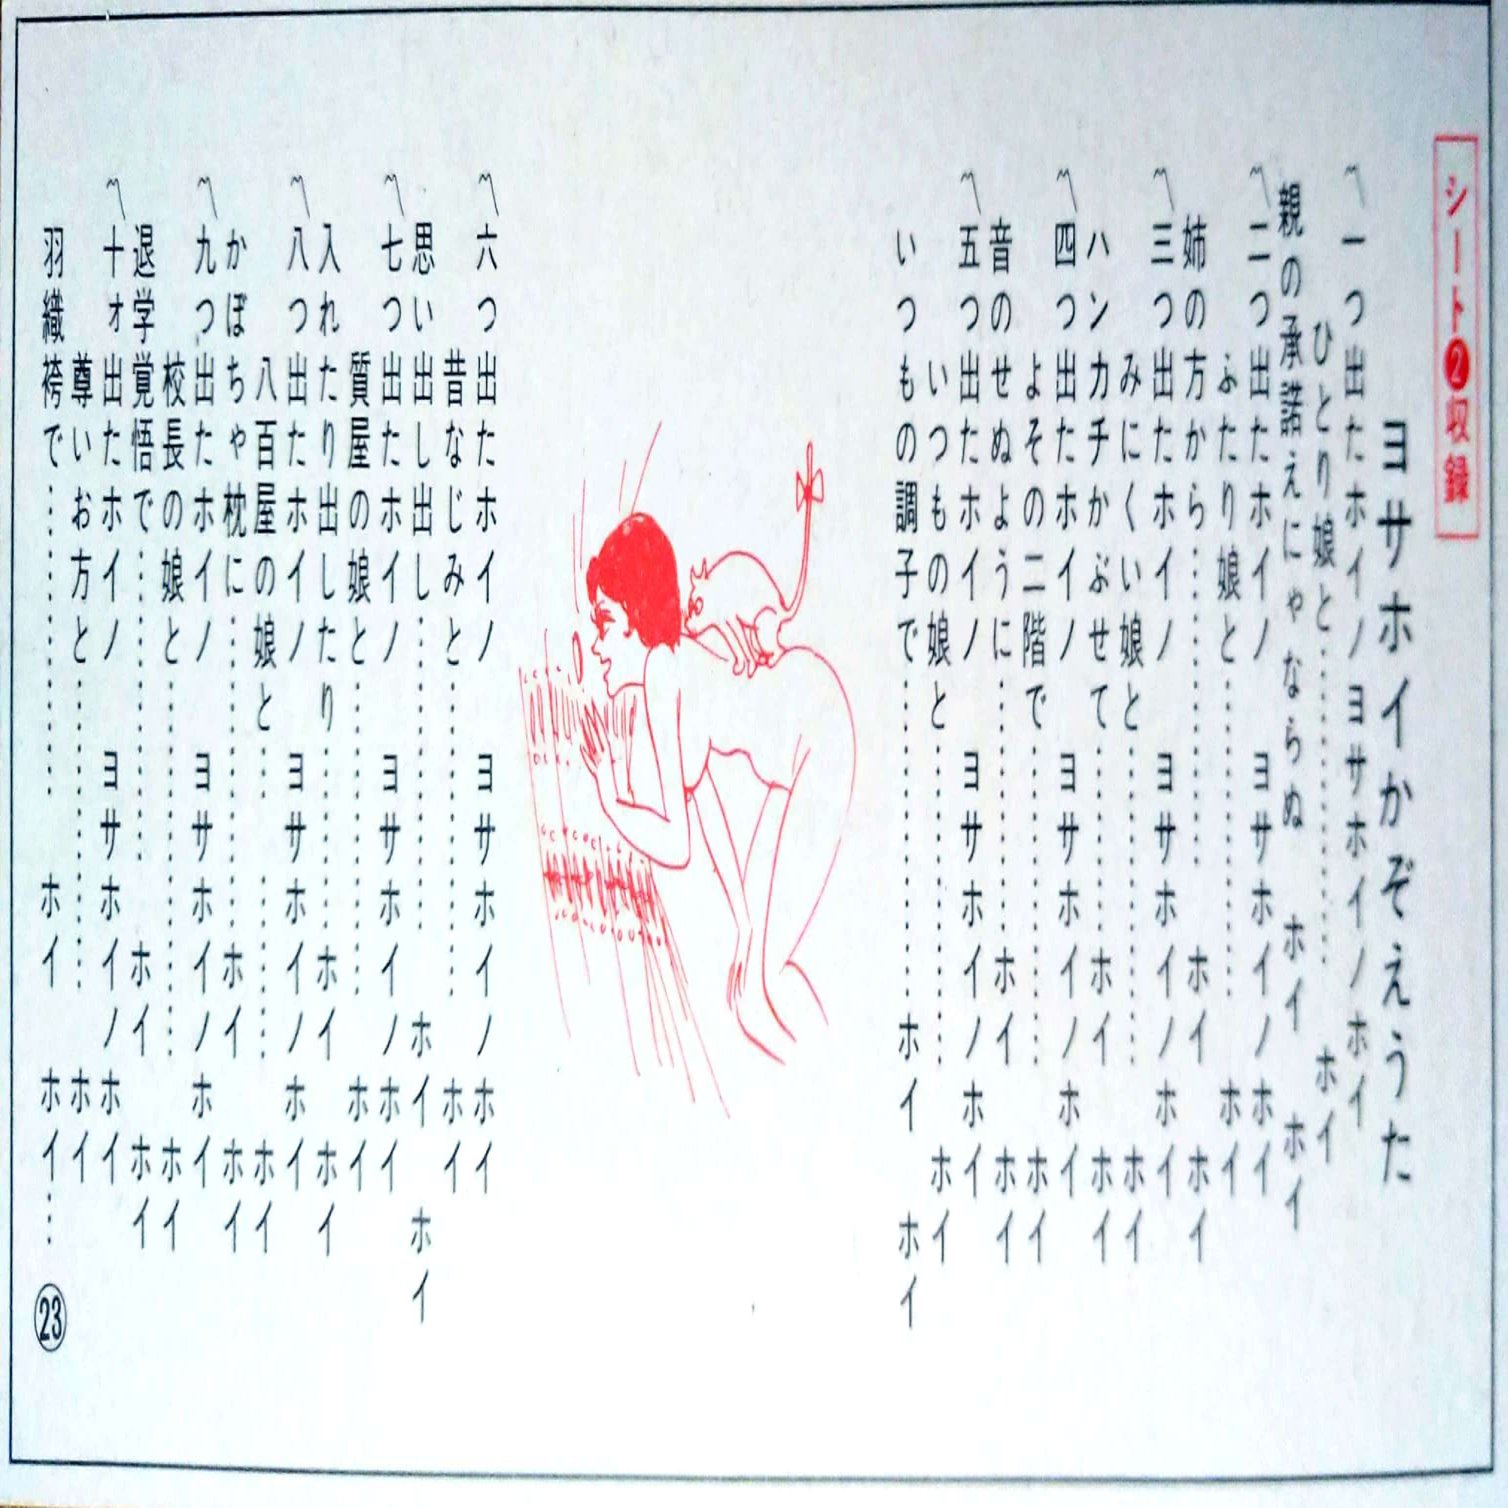 シート❷収録
ヨサホイかぞえうた
〽一つ出たホイノ ヨサホイノホイ
ひとり娘と…………… ホイ
親の承諾えにゃならぬ ホイ ホイ
〽二つ出たホイノ ヨサホイノホイ
ふたり娘と…………… ホイ
姉の方から…………… ホイ ホイ
〽三つ出たホイノ ヨサホイノホイ
みにくい娘と…………… ホイ
ハンカチかぶせて…………… ホイ ホイ
〽四つ出たホイノ ヨサホイノホイ
よその二階で…………… ホイ
音のせぬように…………… ホイ ホイ
〽五つ出たホイノ ヨサホイノホイ
いつもの娘と…………… ホイ
いつもの調子で…………… ホイ ホイ
〽六つ出たホイノ ヨサホイノホイ
昔なじみと…………… ホイ
思い出し出し…………… ホイ ホイ
〽七つ出たホイノ ヨサホイノホイ
質屋の娘と…………… ホイ
入れたり出したり…………… ホイ ホイ
〽八つ出たホイノ ヨサホイノホイ
八百屋の娘と…………… ホイ
かぼちゃ枕に…………… ホイ ホイ
〽九つ出たホイノ ヨサホイノホイ
校長の娘と…………… ホイ
退学覚悟で…………… ホイ ホイ
〽十ォ出たホイノ ヨサホイノホイ
尊いお方と…………… ホイ
羽織袴で…………… ホイ ホイ…
㉓